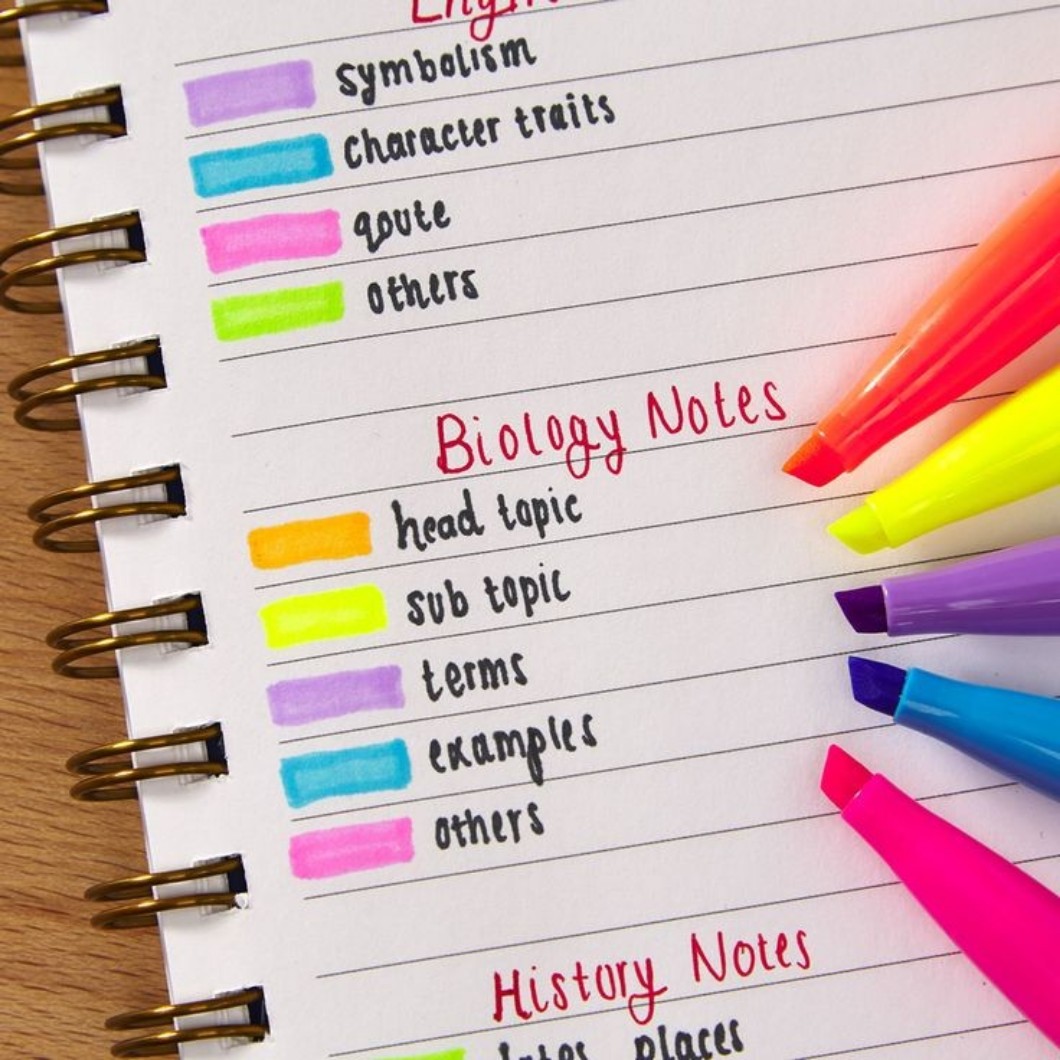 symbolism
character traits
qoute
others
Biology Notes
head topic
sub topic
terms
examples
others
History Notes
places